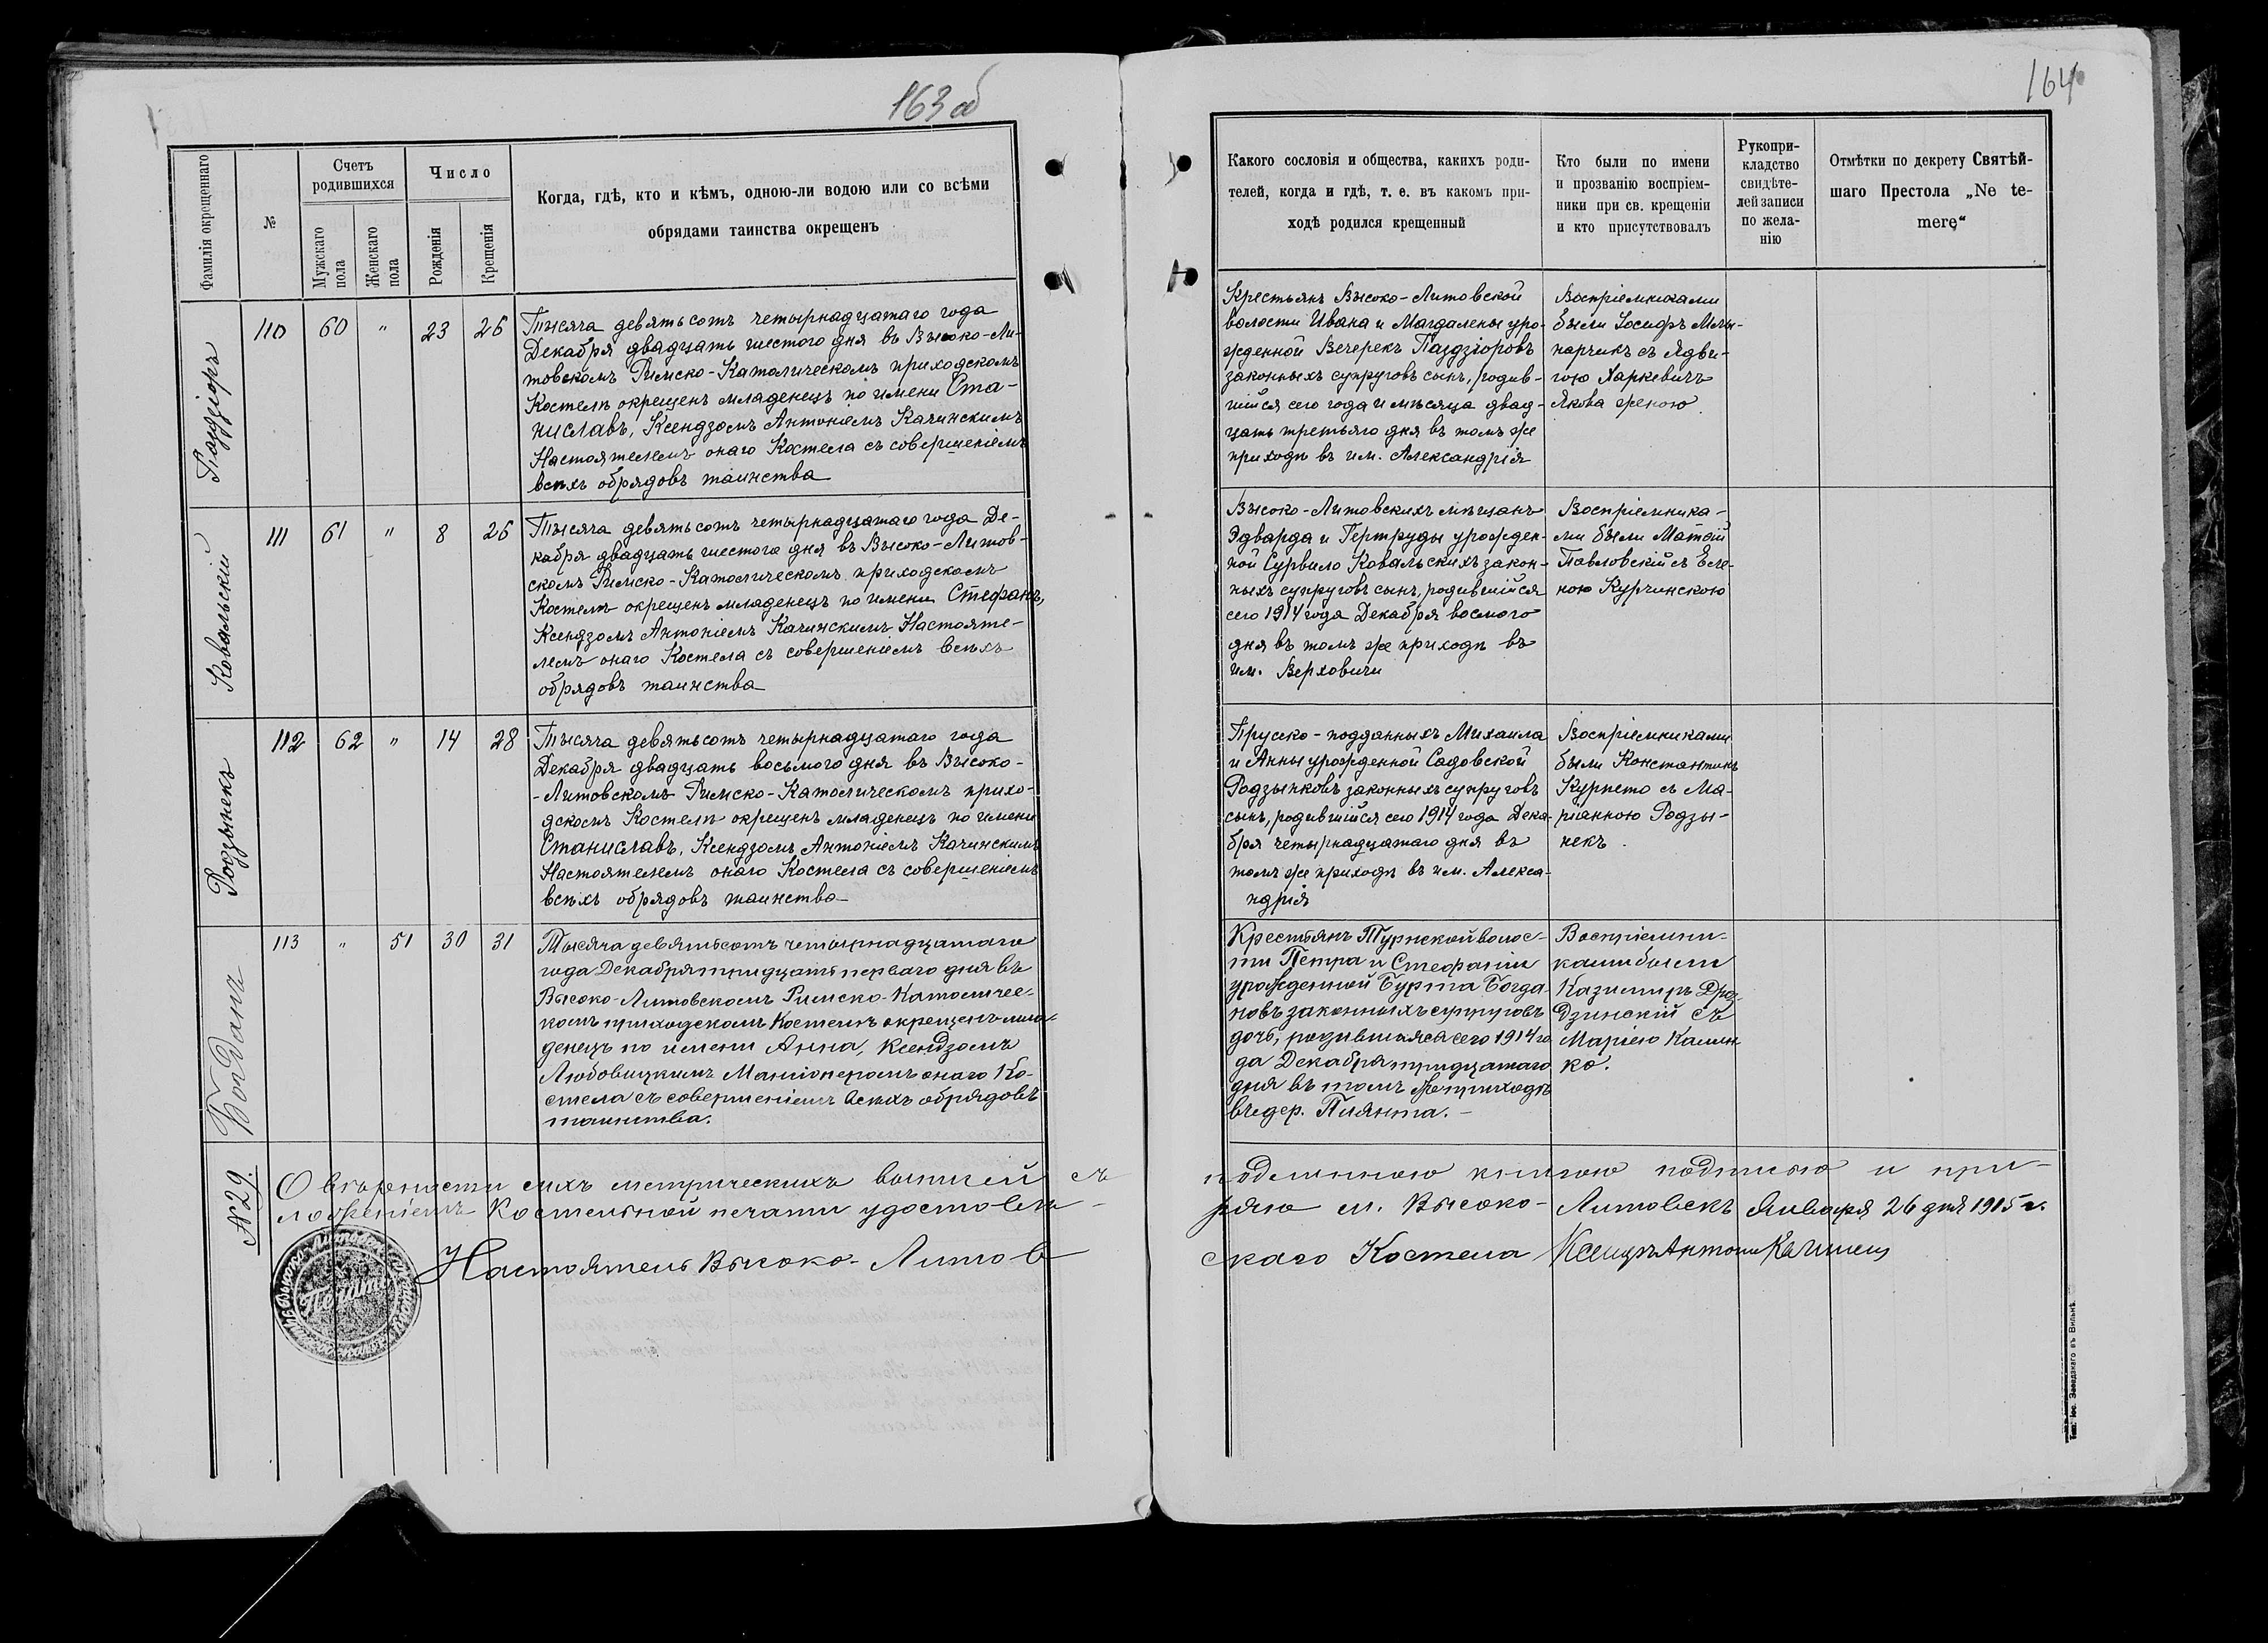 163 об
Фамилія окрещеннаго
№
Счетъ
родившихся
Мужскаго
пола
Женскаго
пола
Число
Рожденія
Крещенія
Когда, гдѣ, кто и кѣмъ, одною-ли водою или со всѣми
обрядами таинства окрещенъ
Паздзіоръ
110 60 " 23 26
Тысяча девятьсотъ четырнадцатаго года
Декабря двадцать шестого дня въ Высоко-Ли-
товскомъ Римско-Католическомъ приходскомъ
Костелѣ окрещенъ младенецъ по имени Ста-
ниславъ, Ксендзомъ Антоніемъ Качинскимъ
Настоятелемъ онаго Костела съ совершеніемъ
всѣхъ обрядовъ таинства
Ковальскій
111 61 " 8 26
Тысяча девятьсотъ четырнадцатаго года Де-
кабря двадцать шестого дня въ Высоко-Литов-
скомъ Римско-Католическомъ приходскомъ
Костелѣ окрещенъ младенецъ по имени Стефанъ,
Ксендзомъ Антоніемъ Качинскимъ Настояте-
лемъ онаго Костела съ совершеніемъ всѣхъ
обрядовъ таинства
Родзынекъ
112 62 " 14 28
Тысяча девятьсотъ четырнадцатаго года
Декабря двадцать восьмого дня въ Высоко-
-Литовскомъ Римско-Католическомъ прихо-
дскомъ Костелѣ окрещенъ младенецъ по имени
Станиславъ, Ксендзомъ Антоніемъ Качинскимъ
Настоятелемъ онаго Костела съ совершеніемъ
всѣхъ обрядовъ таинства
Богданъ
113 " 51 30 31
Тысяча девятьсотъ четырнадцатаго
года Декабря тридцать перваго дня въ
Высоко-Литовскомъ Римско-Католичес-
комъ приходскомъ Костелѣ окрещенъ мла-
денецъ по имени Анна, Ксендзомъ
Любовицкимъ Мансіонеромъ онаго Ко-
стела съ совершеніемъ всѣхъ обрядовъ
таинства.
№ 29.
О вѣрности сихъ метрическихъ выписей съ
ложеніемъ Костельной печати удостовѣ-
Настоятель Высоко-Литов
Печать
164
Какого сословія и общества, какихъ роди-
телей, когда и гдѣ, т. е. въ какомъ при-
ходѣ родился крещенный
Кто были по имени
и прозванію воспріем-
ники при св. крещеніи
и кто присутствовалъ
Рукопри-
кладство
свидѣте-
лей записи
по жела-
нію
Отмѣтки по декрету Святѣй-
шаго Престола „Ne te-
merę“
Крестьянъ Высоко-Литовской
волости Ивана и Магдалены уро-
жденной Вечерекъ Паздзіоровъ
законныхъ супруговъ сынъ, родив-
шійся сего года и мѣсяца двад-
цать третьяго дня въ томъ же
приходѣ въ им. Александрія
Воспріемниками
были Іосифъ Млы-
нарчикъ съ Ядви-
гою Харкевичъ
Якова женою.
Высоко-Литовскихъ мѣщанъ
Эдварда и Гертруды урожден-
ной Сурвило Ковальскихъ закон-
ныхъ супруговъ сынъ, родившійся
сего 1914 года Декабря восмого
дня въ томъ же приходѣ въ
им. Верховичи
Воспріемника-
ми были Матѳій
Павловскій съ Еле-
ною Курчинскою
Прусско-подданныхъ Михаила
и Анны урожденной Садовской
Родзынковъ законныхъ супруговъ
сынъ, родившійся сего 1914 года Дека-
бря четырнадцатаго дня въ
томъ же приходѣ въ им. Алекса-
ндрія
Воспріемниками
были Константинъ
Курпето съ Ма-
ріанною Родзы-
некъ.
Крестьянъ Турнской волос-
ти Петра и Стефаніи
урожденной Бурта Богда-
новъ законныхъ супруговъ
дочь, родившаяся сего 1914 го
да Декабря тридцатаго
дня въ томъ же приходѣ
въ дер. Пилянта.-
Воспріемни-
ками были
Казимиръ Дроз-
дзинскій съ
Маріею Калин
ко.
подлинною книгою подписью и при-
ряю м. Высоко-Литовскъ Января 26 дня 1915 г.
скаго Костела Ксендзъ Антоній Качинскі
Тип. Іос. Завадзкаго въ Вильнѣ.